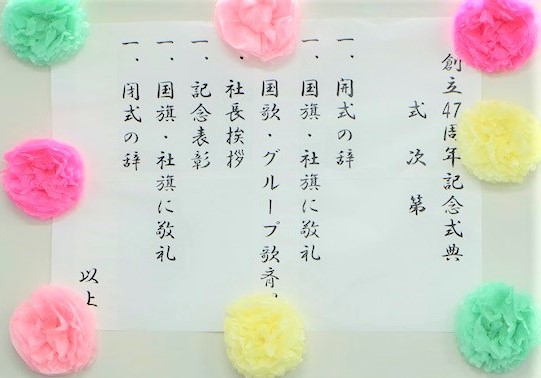 創立47周年記念式典
式次第
一、開式の辞
一、国旗・社旗に敬礼
国歌・グループ歌斉
、社長挨拶
一、記念表彰
一、国旗・社旗に敬礼
一、閉式の辞
以上